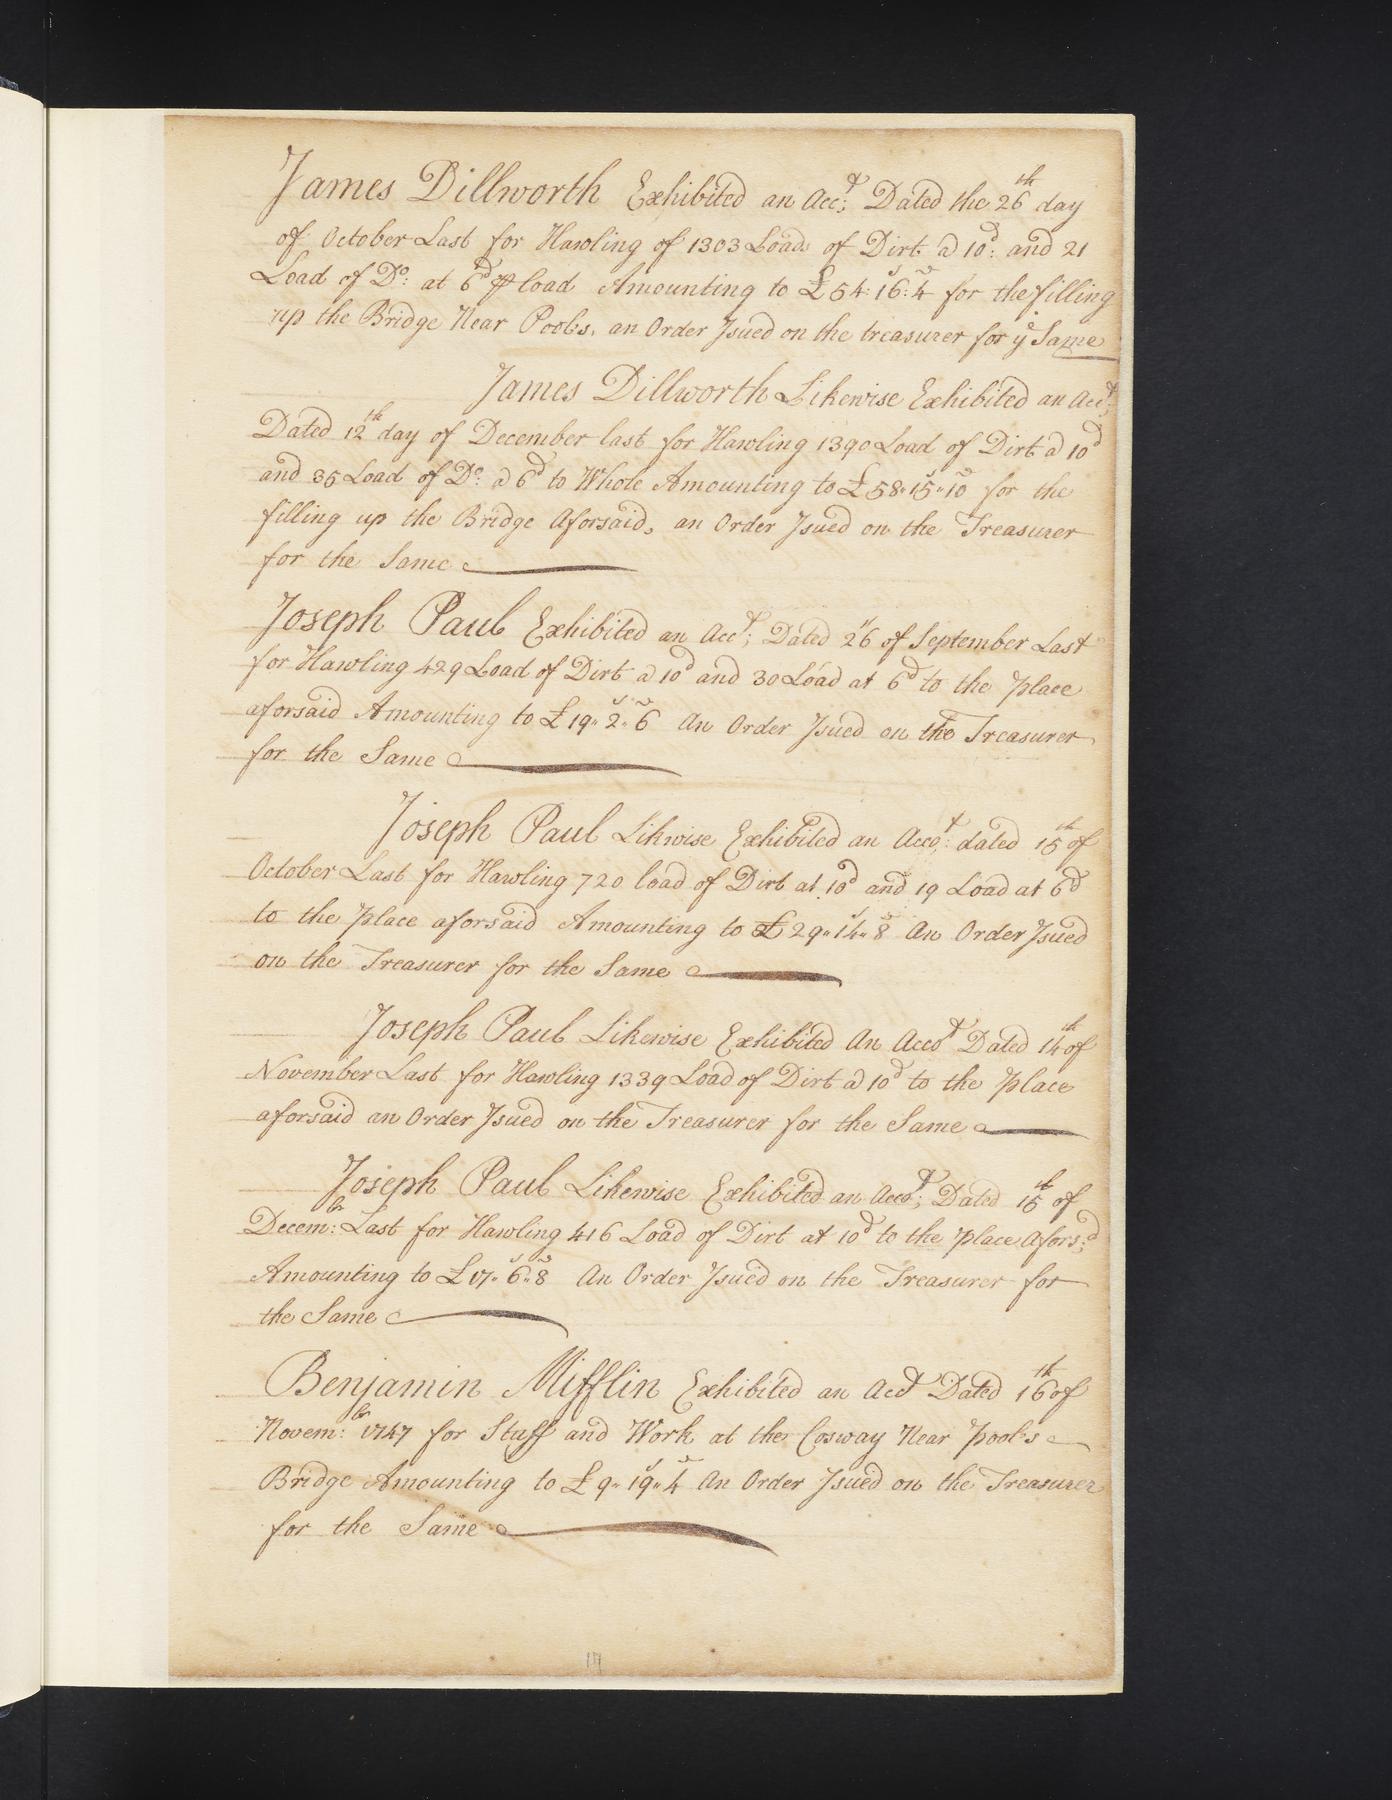 James Dillworth Exhibited an Acct; Dated the 26th day
of October Last for Hawling of 1303 Loads of Dirt a 10d: and 21
Load of Do: at 6d ⅌ load Amounting to £54:16s:4d for the filling
up the Bridge Near Pools, an Order Isued on the treasurer for ye Same
James Dillworth Likewise Exhibited an Acct;
Dated 12th day of December last for Hawling 1390 Load of Dirt a 10d
and 35 Load of Do: a 6d to Whole Amounting to £58"15s"10d for the
filling up the Bridge Aforsaid, an Order Isued on the Treasurer
for the Same
Joseph Paul Exhibited an Acct; Dated 26 of September Last
for Hawling 429 Load of Dirt a 10d and 30 Load at 6d to the place
aforsaid Amounting to £19"2s"6d An Order Isued on the Treasurer
for the Same
Joseph Paul Likwise Exhibited an Accot: dated 15th of
October Last for Hawling 720 load of Dirt at 10d and 19 Load at 6d
to the place aforsaid Amounting to £29"14s"8d An Order Isued
on the Treasurer for the Same
Joseph Paul Likewise Exhibited An Accot Dated 14th of
November Last for Hawling 1339 Load of Dirt a 10d to the place
aforsaid an Order Isued on the Treasurer for the Same
Joseph Paul Likewise Exhibited an Accot; Dated 15th of
Decembr: Last for Hawling 416 Load of Dirt at 10d to the place Aforsd;
Amounting to £17"6s"8d An Order Isued on the Treasurer for
the Same
Benjamin Mifflin Exhibited an Acct Dated 16th of
Novembr: 1747 for Stuff and Work at the Cosway Near Pools
Bridge Amounting to £9"19s"4d An Order Isued on the Treasurer
for the Same